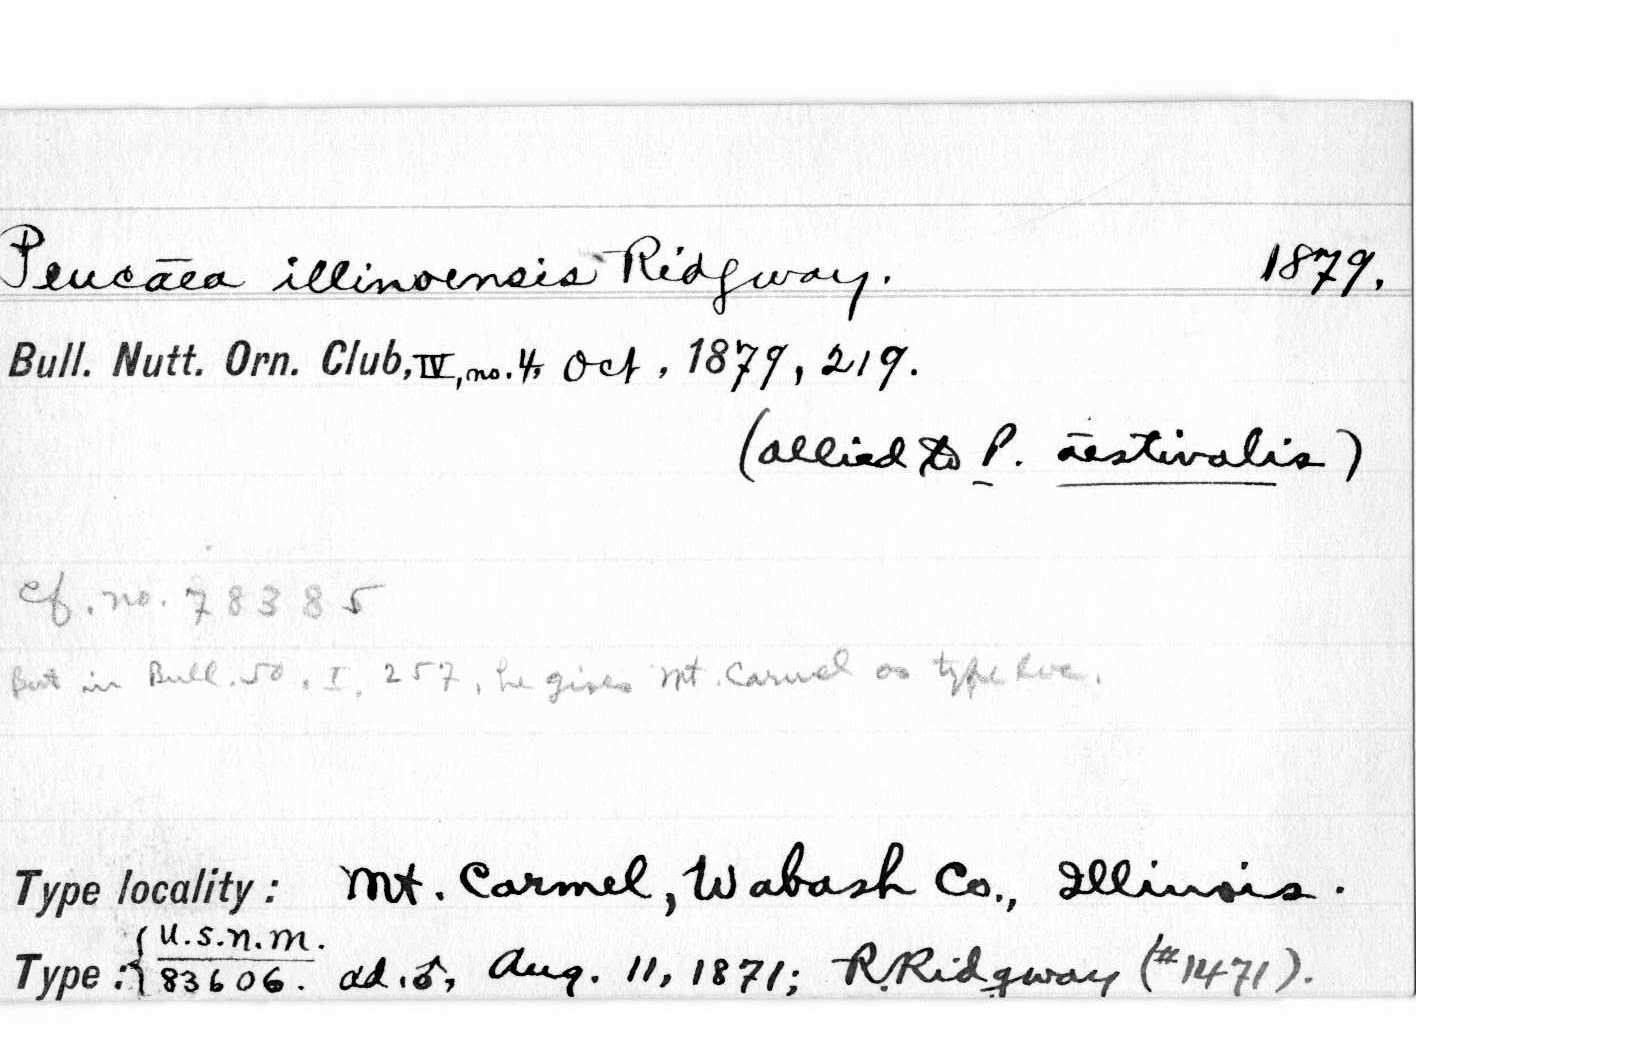 Peucæa illinoensis Ridgway. 1879.
Bull. Nutt. Orn. Club, IV, no. 4, Oct, 1879, 219.
(allied to P. æstivalis)
cf. no. 78385
But in Bull. 50, I, 257, he gives Mt. Carmel as type loc.
Type locality: Mt. Carmel, Wabash Co., Illinois.
Type: { U.S.N.M.
83606. ad. ♂, Aug. 11, 1871; R. Ridgway (#1471).